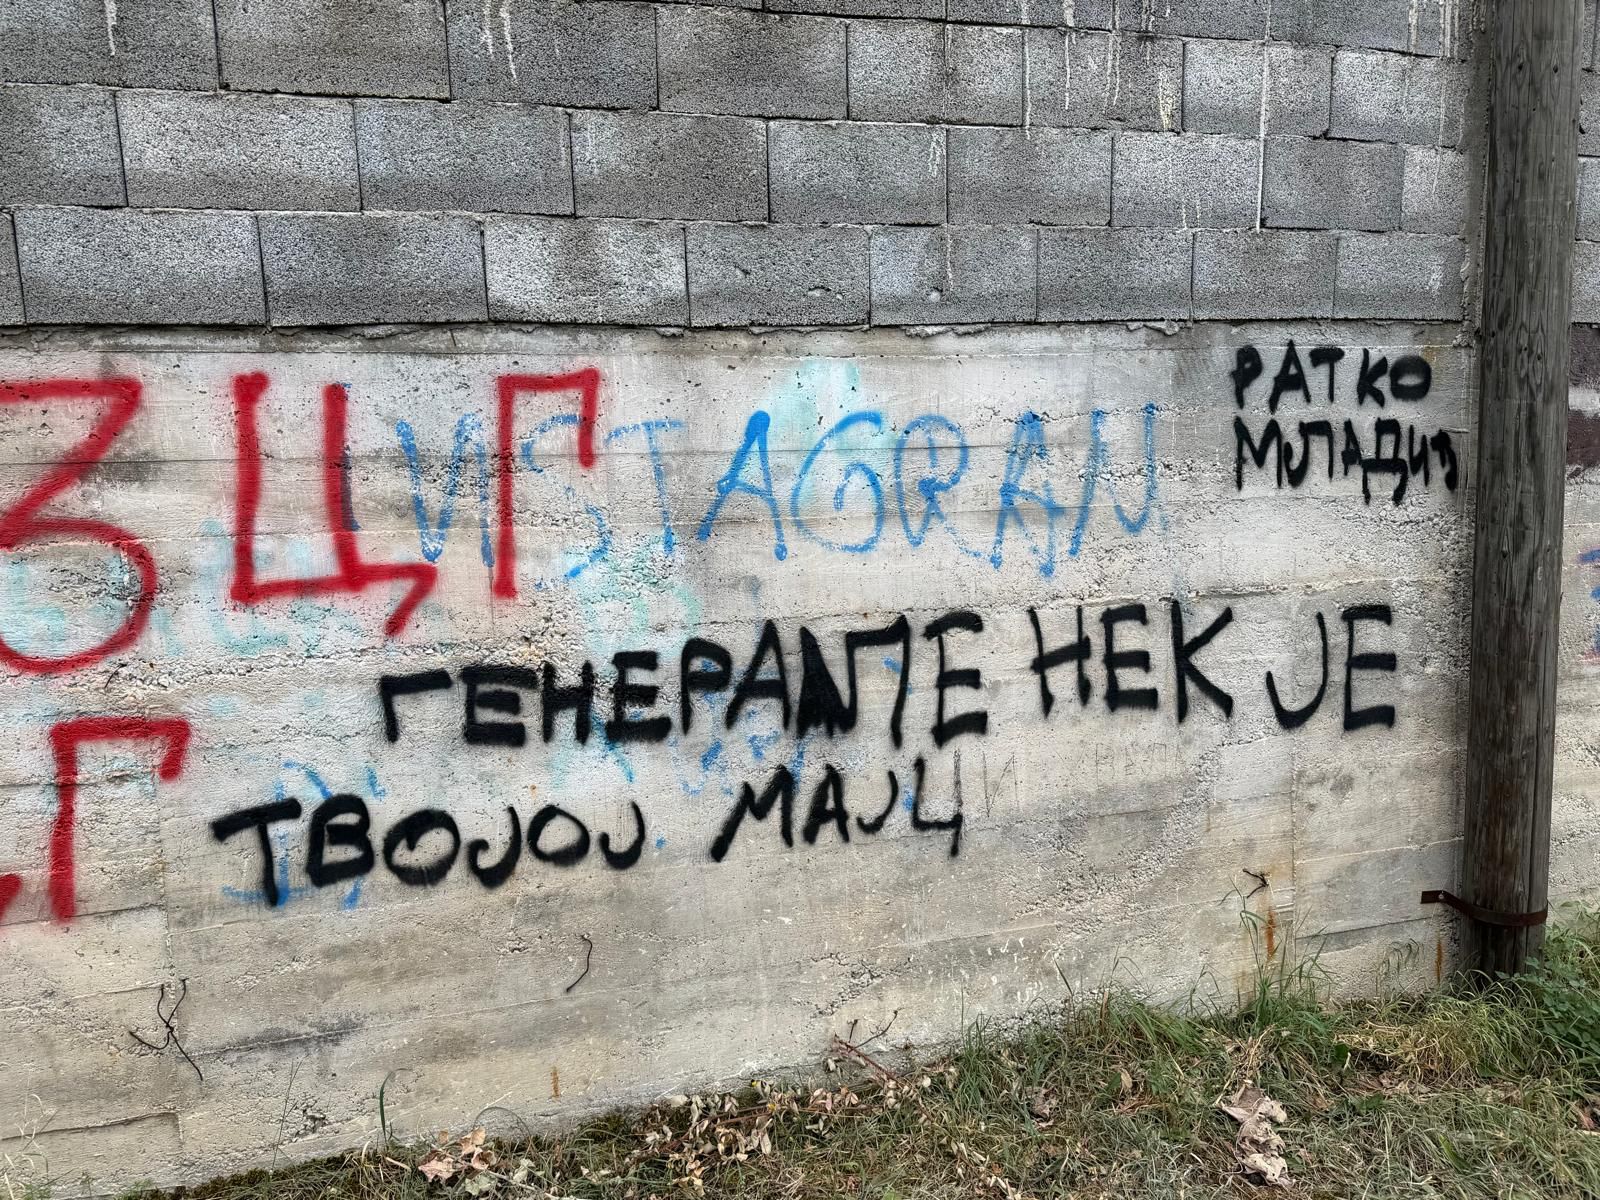 ЦГ
ИSTAGRAM
РАТКО
МЛАДИЋ
ГЕНЕРАЛЕ НЕК ЈЕ
ТВОЈОЈ МАЈЦИ
Г